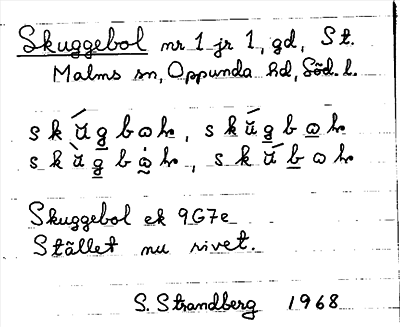 Skuggebol nr 1 jr 1, gd, St.
Malms sn, Oppunda hd, Söd. l.
Skuggebol ek 9G7e
Stället nu rivet.
S. Strandberg 1968